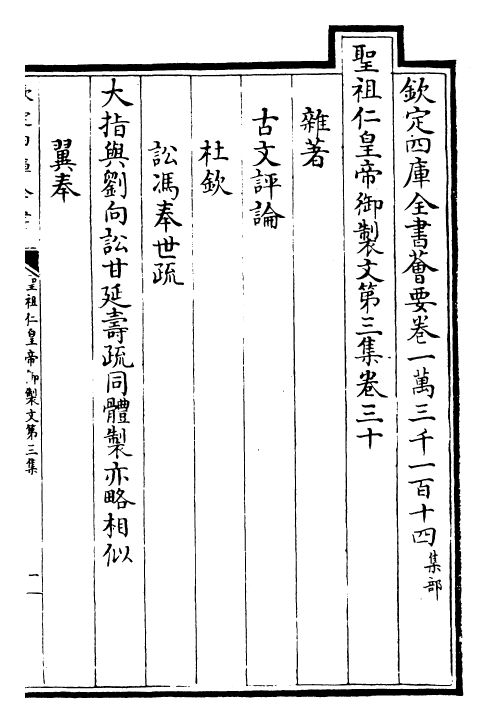 欽定四庫全書薈要卷一萬三千一百十四集部
聖祖仁皇帝御製文第三集卷三十
雜著
古文評論
杜欽
訟馮奉世疏
大指與劉向訟甘延壽疏同體製亦略相似
翼奉
聖祖仁皇帝御製文第三集